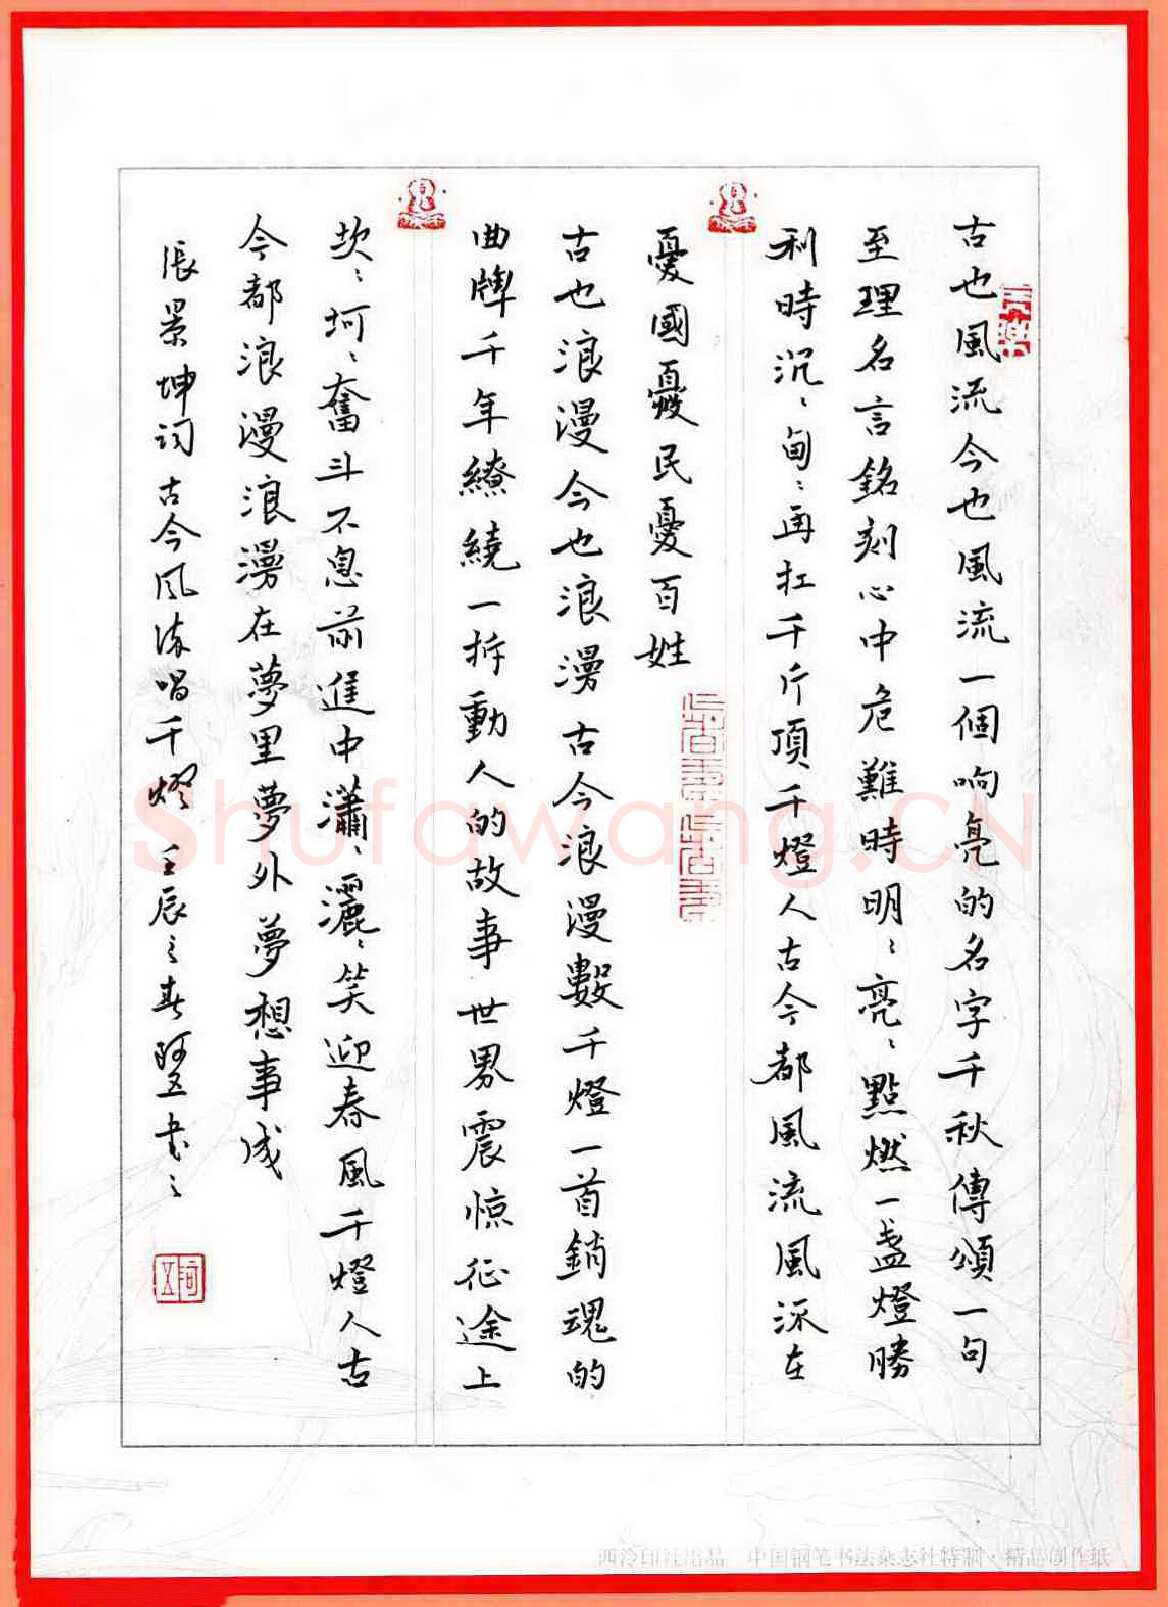 古也風流今也風流一個响亮的名字千秋傳頌一句
至理名言銘刻心中危難時明〻亮〻點燃一盏燈勝
利時沉〻甸〻再扛千斤頂千燈人古今都風流風流在
憂國憂民憂百姓
古也浪漫今也浪漫古今浪漫數千燈一首銷魂的
曲牌千年繚繞一拆動人的故事世界震惊征途上
坎〻坷〻奮斗不息前進中瀟〻灑〻笑迎春風千燈人古
今都浪漫浪漫在夢里夢外夢想事成
張景坤詞古今风流唱千燈 壬辰之春 书之
Shufawang.CN
西泠印社出品 中国钢笔书法杂志社特制·精品创作纸